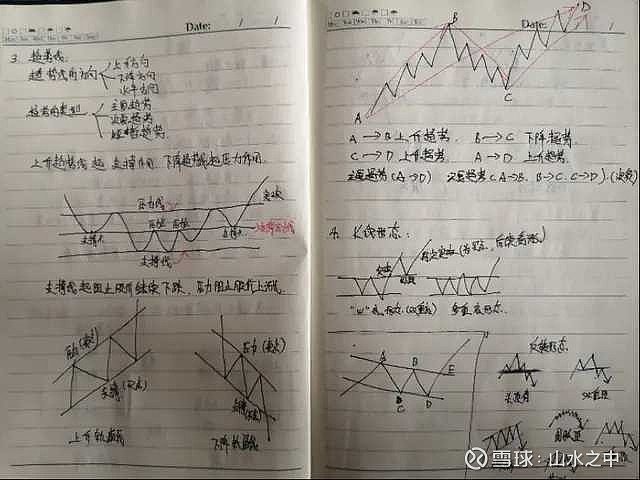 Date: / /
3. 趋势线
趋势线的方向
上升方向
下降方向
水平方向
趋势的类型
主要趋势
次要趋势
短暂趋势
上升趋势线起支撑作用,下降趋势线起压力作用.
压力线
突破
支撑点
压点
压点
支撑点
支撑线
支撑线起阻止股价继续下跌,压力阻止股价上涨.
压力(卖点)
支撑(买点)
压力(卖点)
支撑(买点)
上升轨道线
下降轨道线
Date: / /
A
B
C
D
A→B上升趋势. B→C 下降趋势.
C→D 上升趋势. A→D 上升趋势.
主要趋势(A→D) 次要趋势(A→B. B→C. C→D).
4. 长线形态:
突破
"W"底形态(双重底) 多重底形态.
A
B
E
C
D
反转形态
头肩顶
双重顶
圆弧顶
雪球:山水之中